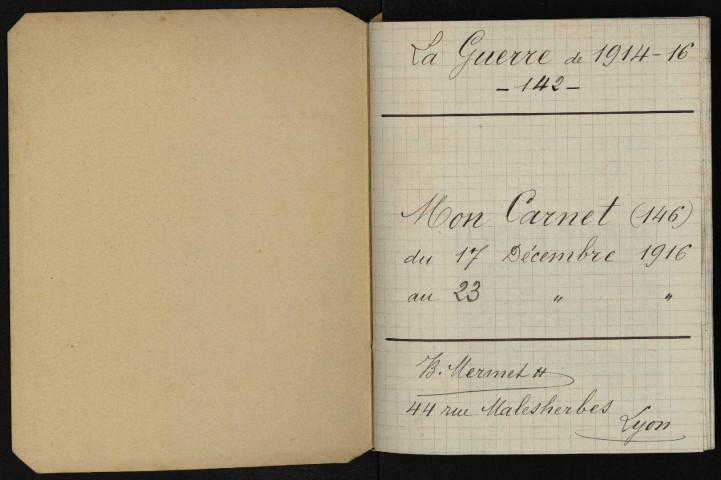 La Guerre de 1914-16
- 142 -
Mon Carnet (146)
du 17 Décembre 1916
au 23 " "
B. Mermet
44 rue Malesherbes
Lyon